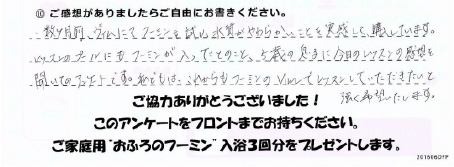 ⑩ ご感想がありましたらご自由にお書きください。
数ヶ月前、ヴィルにてフーミンを試し水質がやわらかいことを実感して、購入しています。
レッスンのプールにもフーミンが入ってとのこと、5歳の息子に今日のレッスンの感想を
聞いての
これからもフーミンの レッスンしていただきたいと
強く希望いたします。
ご協力ありがとうございました！
このアンケートをフロントまでお持ちください。
ご家庭用“おふろのフーミン”入浴3回分をプレゼントします。